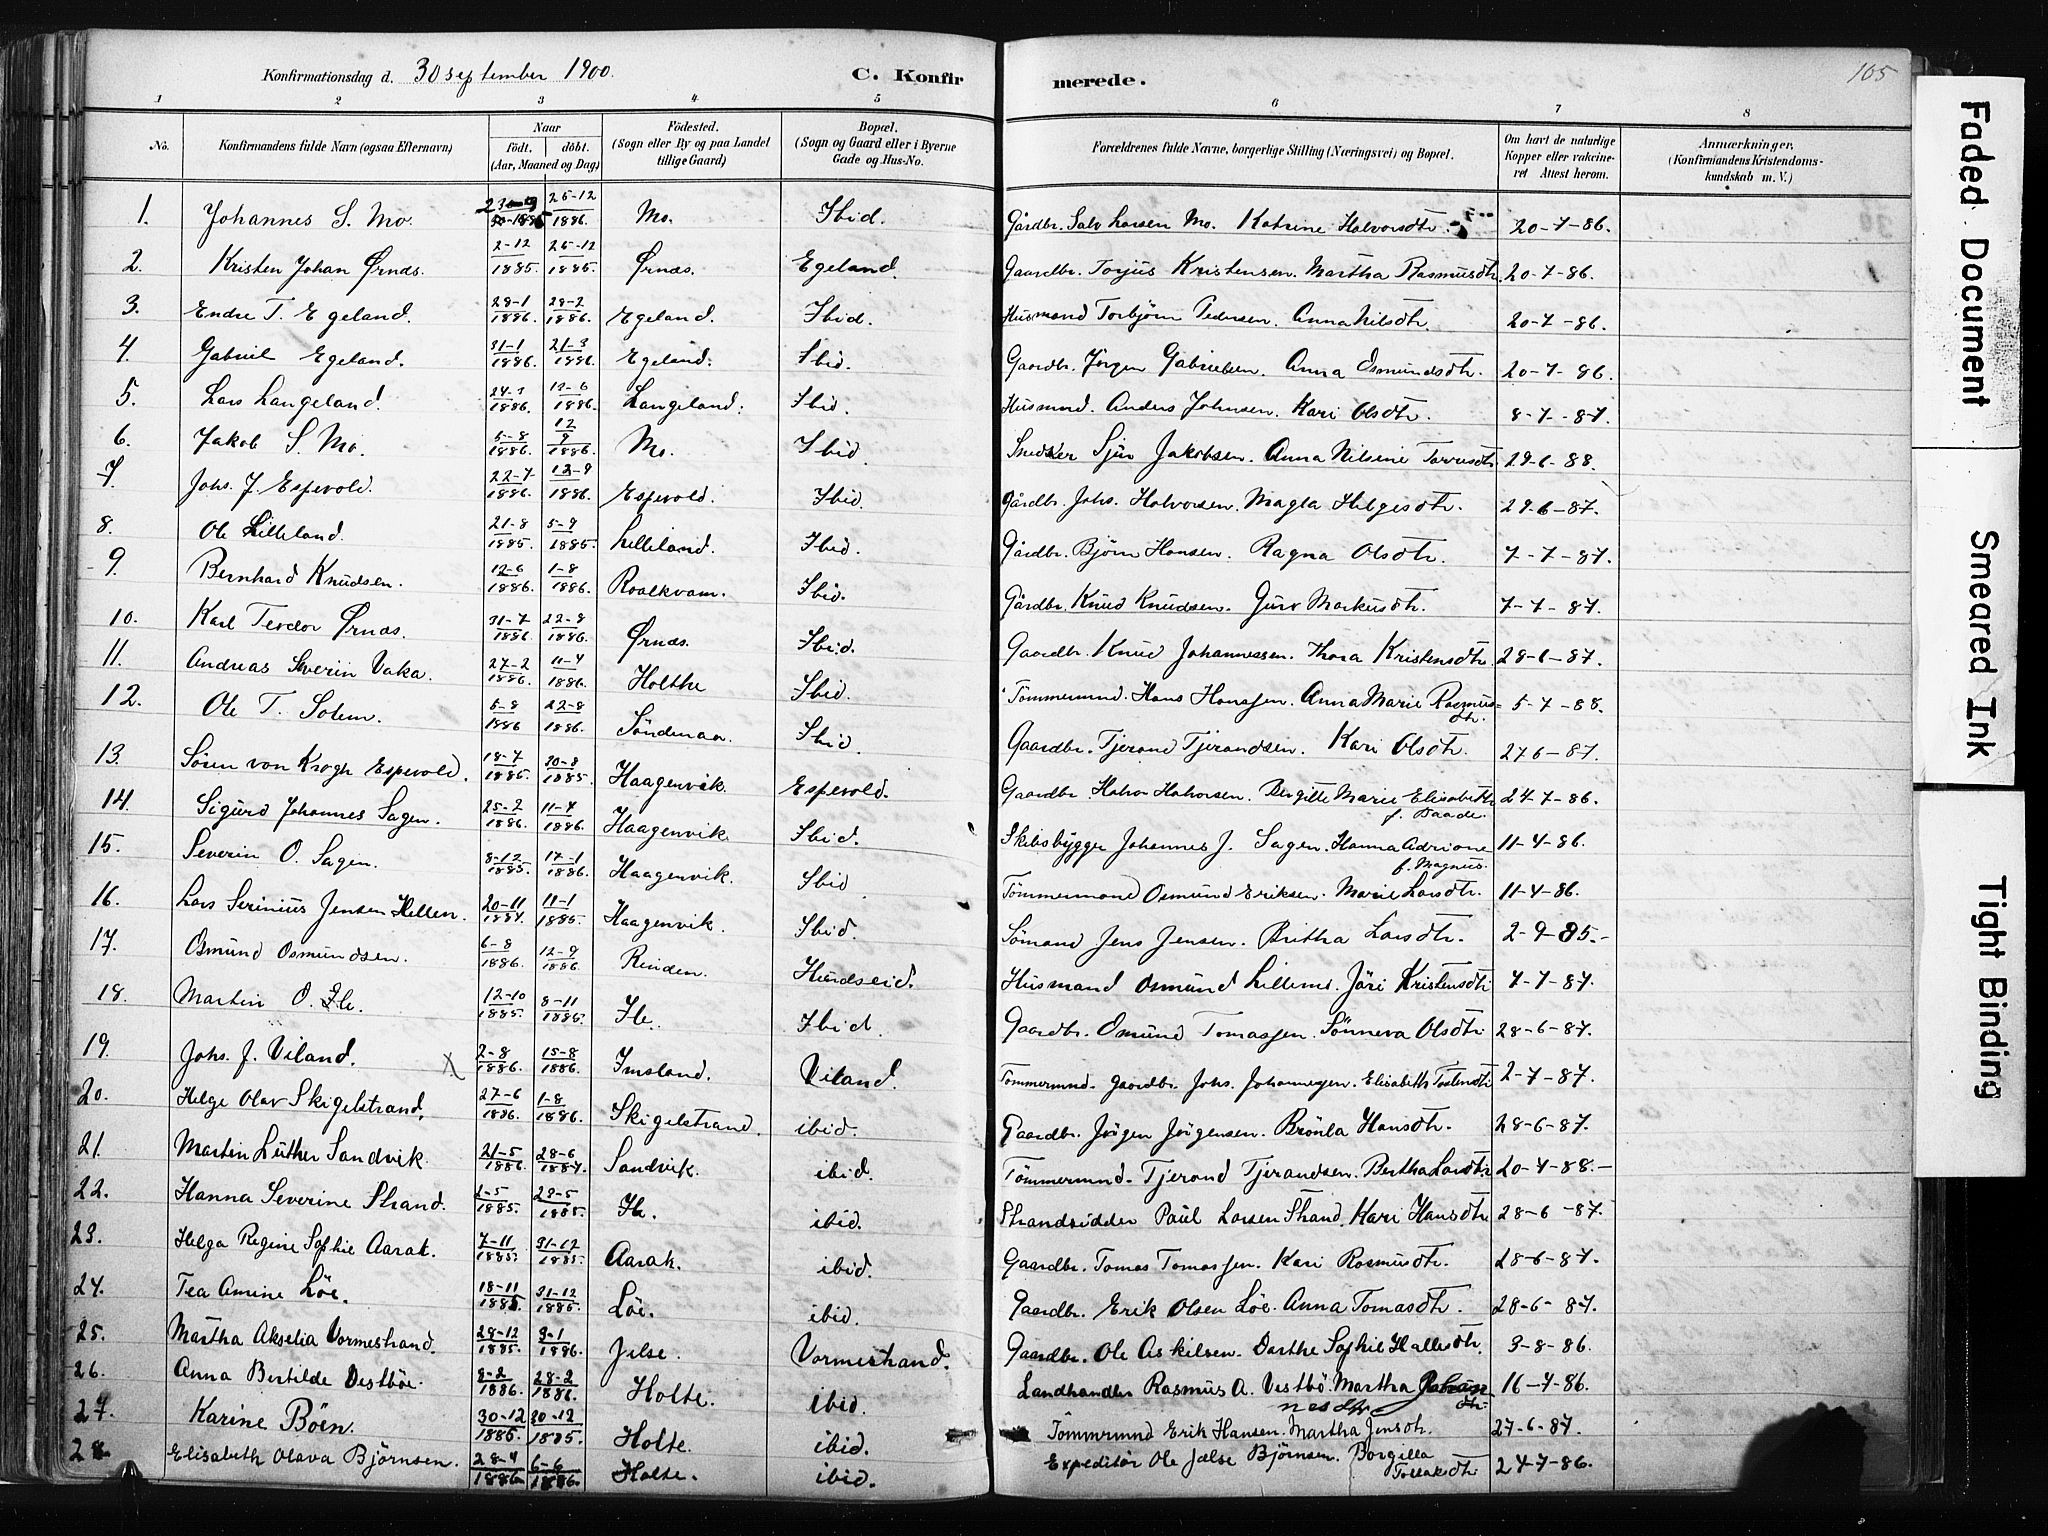 Konfirmationsdag d. 30 september 1900. C. Konfirmerede. 105
1 2 3 4 5 6 7 8
No. Konfirmandens fulde Navn (ogsaa Efternavn) Naar Født. døbt. (Aar, Maaned og Dag) Fødested. (Sogn eller By og paa Landet tillige Gaard) Bopæl. (Sogn og Gaard eller i Byerne Gade og Hus-No. Forældrenes fulde Navne, borgerlige Stilling (Næringsvei) og Bopæl. Om havt de naturlige Kopper eller vakcineret Attest herom. Anmærkninger. (Konfirmandens Kristendomskundskab m. V.)
1. Johannes S. Mo. 25-12 1886. Mo. Ibid. Gårdbr. Salv Larsen Mo. Katrine Halvorsdtr. 20-7-86.
2. Kristen Johan Ørnæs. 2-12 1885. 25-12 1885. Ørnæs. Egeland. Gaardbr. Torjus Kristensen. Martha Rasmusdtr. 20-7-86.
3. Endre T. Egeland. 28-1 1886. 28-2 1886. Egeland. Ibid. Husmand Torbjørn Pedersen. Anna Nilsdtr. 20-7-86.
4. Gabriel Egeland. 31-1 1886. 21-3 1886. Egeland. Ibid. Gaardbr. Jørgen Gabrielsen. Anna Osmundsdtr. 20-7-86.
5. Lars Langeland. 24-3 1886. 12-6 1886. Langeland. Ibid. Husmnd. Anders Johnsen. Kari Olsdtr. 8-7-87.
6. Jakob S. Mo. 5-8 1886. 12 9 1886. Mo. Ibid. Snedker Sjur Jakobsen. Anna Nilsine 29-6-88.
7. Johs. J. Espevold. 22-7 1886. 12-9 1886. Espevold. Ibid. Gårdbr. Johs. Halvorsen. Magla Helgesdtr. 29-6-87.
8. Ole Lilleland. 21-8 1885. 5-9 1885. Lilleland. Ibid. Gårdbr. Bjørn Hansen. Ragna Olsdtr. 7-7-87.
9. Bernhard Knudsen. 12-6 1886. 1-8 1886. Roalkvam. Ibid. Gårdbr. Knud Knudsen. Guro Markusdtr. 7-7-87.
10. Karl Teodor Ørnæs. 31-7 1886. 22-8 1886. Ørnæs. Ibid. Gaardbr. Knud Johannessen. Thora Kristensdtr. 28-6-87.
11. Andreas Severin Vaka. 27-2 1886. 11-4 1886. Holthe Ibid. Tömmermnd. Hans Hansjen. Anna Marie Rasmusdtr. 5-7-88.
12. Ole T. Solem. 6-8 1886 22-8 1886. Söndenaa. Ibid. Gaardbr. Tjerand Tjerandsen. Kari Olsdtr. 27-6-87.
13. Sören von Krogh Espevold. 18-7 1885. 30-8 1885. Haagenvik. Espevold. Gaardbr. Halvor Halvorsen. Bergitte Marie Elisabeth f. Baade. 24-7-86.
14. Sigurd Johannes Sagen. 25-2 1886. 11-4 1886. Haagenvik. Ibid. Skibsbygger Johannes J. Sagen. Hanna Adriane f. Magnus. 11-4-86.
15. Severin O. Sagen. 8-12 1885. 17-1 1886. Haagenvik. Ibid Tömmermand Osmund Eriksen. Marie Larsdtr. 11-4-86.
16. Lars Serinius Jensen Hellen. 20-11 1884. 11-1 1885. Haagenvik. Ibid. Sömand Jens Jensen. Britha Larsdtr. 2-9-85.-
17. Osmund Osmundsen. 6-8 1886. 12-9 1886. Rinden. Hundseid. Husmand Osmund Jöri Kristensdtr 7-7-87.
18. Martin O. Ile. 12-10 1885. 8-11 1885. Ile. Ibid. Gaardbr. Osmund Tomasjen. Sönneva Olsdtr 28-6-87.
19. Johs. J. Viland. X 2-8 1886. 15-8 1886. Imsland. Viland. Tömmermnd- gaardbr. Johs. Johannesjen. Elisabeth 2-7-87.
20. Helge Olav Skigelstrand. 27-6 1886. 1-8 1886. Skigelstrand. ibid. Gaardbr. Jörgen Jörgensen. Brönla Hansdtr. 28-6-87.
21. Martin Luther Sandvik. 21-5 1886. 28-6 1884. Sandvik. ibid. Tömmermnd- Tjerand Tjerandsen. Bertha Larsdtr 20-4-88.-
22. Hanna Severine Strand. 2-5 1885. 23-5 1885. Ile. ibid. Strandsidder Paul Larsen Strand. Kari Hansdtr 28-6-87.
23. Helga Regine Sofhie Aarak. 7-11 1885. 31-12 1885. Aarak. ibid. Gaardbr. Tomas Tomasjen. Kari Rasmusdtr. 28-6-87.
24. Tea Amine Löe. 18-11 1885. 31-12 1885. Löe. ibid. Gaardbr. Erik Olsen Löe. Anna Tomasdtr. 28-6-87.
25. Martha Akselia Vormestrand. 28-12 1885. 3-1 1886. Jelse. Vormestrand. Gaardbr. Ole Askilsen. Dorthe Sofhie Halledtr. 3-8-86.
26. Anna Bertilde Vestböe. 8-2 1886. 28-2 1886. Holte. ibid. Landhandler Rasmus A. Vestbö. Martha Johannesdtr 16-7-86.
27. Karine Böen. 30-12 1885. 30-12 1885. Holte. ibid. Tömmermnd Erik Hansen. Martha Jensdtr. 27-6-87.
28. Elisabeth Olava Björnsen. 28-4 1886 6-6 1886. Holte. ibid. Expeditör Ole Jelse Björnsen. Borgilla Tollaksdtr 24-7-86.
Faded Document
Smeared Ink
Tight Binding